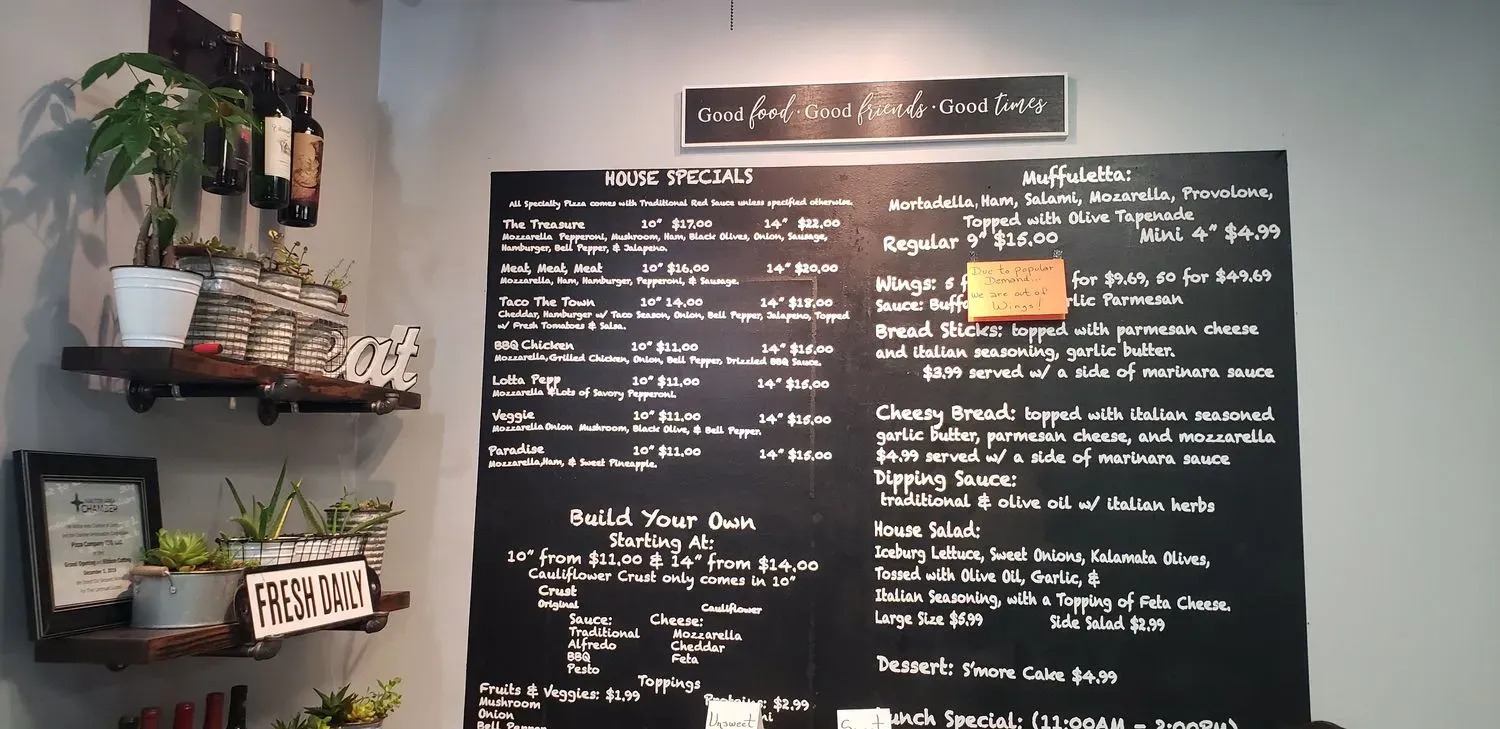 Good food · Good friends · Good times
HOUSE SPECIALS
All Specialty Pizza comes with Traditional Red Sauce unless specified otherwise.
The Treasure 10" $17.00 14" $22.00
Mozzarella Pepperoni, Mushroom, Ham, Black Olives, Onion, Sausage,
Hamburger, Bell Pepper, & Jalapeno.
Meat, Meat, Meat 10" $16.00 14" $20.00
Mozzarella, Ham, Hamburger, Pepperoni, & Sausage.
Taco The Town 10" 14.00 14" $18.00
Cheddar, Hamburger w/ Taco Season, Onion, Bell Pepper, Jalapeno, Topped
w/ Fresh Tomatoes & Salsa.
BBQ Chicken 10" $11.00 14" $15.00
Mozzarella, Grilled Chicken, Onion, Bell Pepper, Drizzled BBQ Sauce.
Lotta Pepp 10" $11.00 14" $15.00
Mozzarella &Lots of Savory Pepperoni.
Veggie 10" $11.00 14" $15.00
Mozzarella Onion Mushroom, Black Olive, & Bell Pepper.
Paradise 10" $11.00 14" $15.00
Mozzarella,Ham, & Sweet Pineapple.
Build Your Own
Starting At:
10" from $11.00 & 14" from $14.00
Cauliflower Crust only comes in 10"
Crust
Original Cauliflower
Sauce: Cheese:
Traditional Mozzarella
Alfredo Cheddar
BBQ Feta
Pesto
Toppings
Fruits & Veggies: $1.99 Proteins: $2.99
Mushroom
Onion
Bell Pepper
Unsweet
Muffuletta:
Mortadella, Ham, Salami, Mozarella, Provolone,
Topped with Olive Tapenade
Regular 9" $15.00 Mini 4" $4.99
Wings: 5 f for $9.69, 50 for $49.69
Sauce: Buffa rlic Parmesan
Due to popular
Demand...
we are out of
Wings!
Bread Sticks: topped with parmesan cheese
and italian seasoning, garlic butter.
$3.99 served w/ a side of marinara sauce
Cheesy Bread: topped with italian seasoned
garlic butter, parmesan cheese, and mozzarella
$4.99 served w/ a side of marinara sauce
Dipping Sauce:
traditional & olive oil w/ italian herbs
House Salad:
Iceburg Lettuce, Sweet Onions, Kalamata Olives,
Tossed with Olive Oil, Garlic, &
Italian Seasoning, with a Topping of Feta Cheese.
Large Size $5.99 Side Salad $2.99
Dessert: S'more Cake $4.99
unch Special: (11:00AM - 2:00PM)
eat
CHAMBER
FRESH DAILY